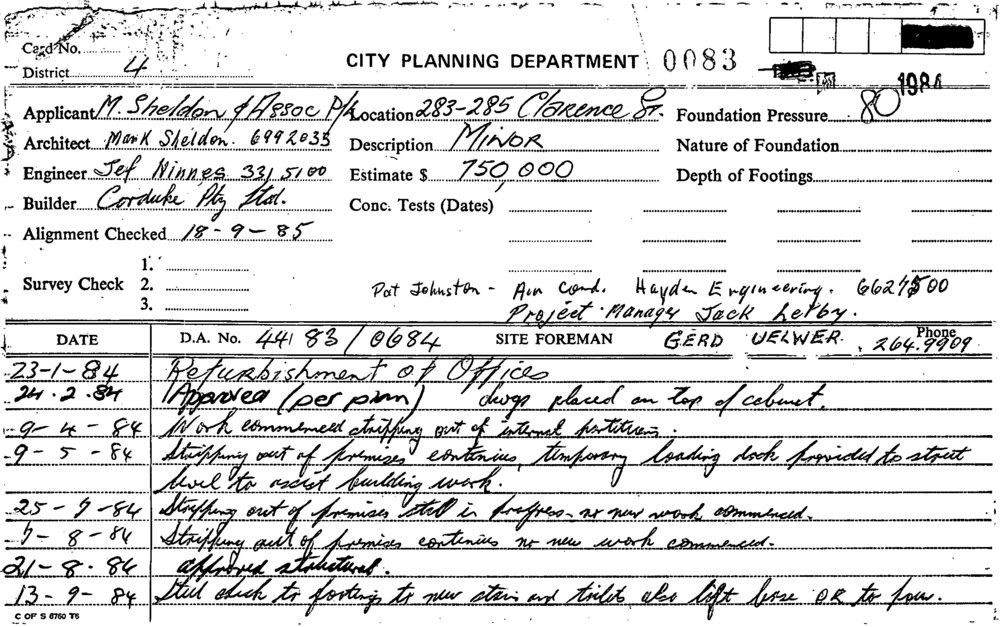 Card No.
District 4
CITY PLANNING DEPARTMENT 0083
1984
Applicant M. Sheldon & Assoc P/L Location 283-285 Clarence St. Foundation Pressure 80
Architect Mark Sheldon. 6992035 Description MINOR Nature of Foundation
Engineer Jef Ninnes 331 5100 Estimate $ 750,000 Depth of Footings
Builder Corduke Pty Ltd. Conc. Tests (Dates)
Alignment Checked 18-9-85
1.
Survey Check 2. Pat Johnston - Air Cond. Hayden Engineering. 6627500
3. Project Manager Jack Leiby.
DATE D.A. No. 44 83/0684 SITE FOREMAN GERD UELWER Phone 264.9909
23-1-84 Refurbishment of Offices
24.2.84 Approved (per pmm) dwgs placed on top of cabinet.
9-4-84 Work commenced stripping out of internal partitions.
9-5-84 Stripping out of premises continues, temporary loading dock provided to street
level to assist building work.
25-7-84 Stripping out of premises still in progress. no new work commenced.
7-8-84 Stripping out of premises continues no new work commenced.
21-8-84 approved structural.
13-9-84 Steel check to footings to new stairs and toilets also lift base OK to pour.
C OF S 6760 T6